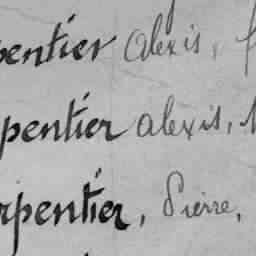 pentier alexis,
pentier alexis,
rpentier, Pierre,